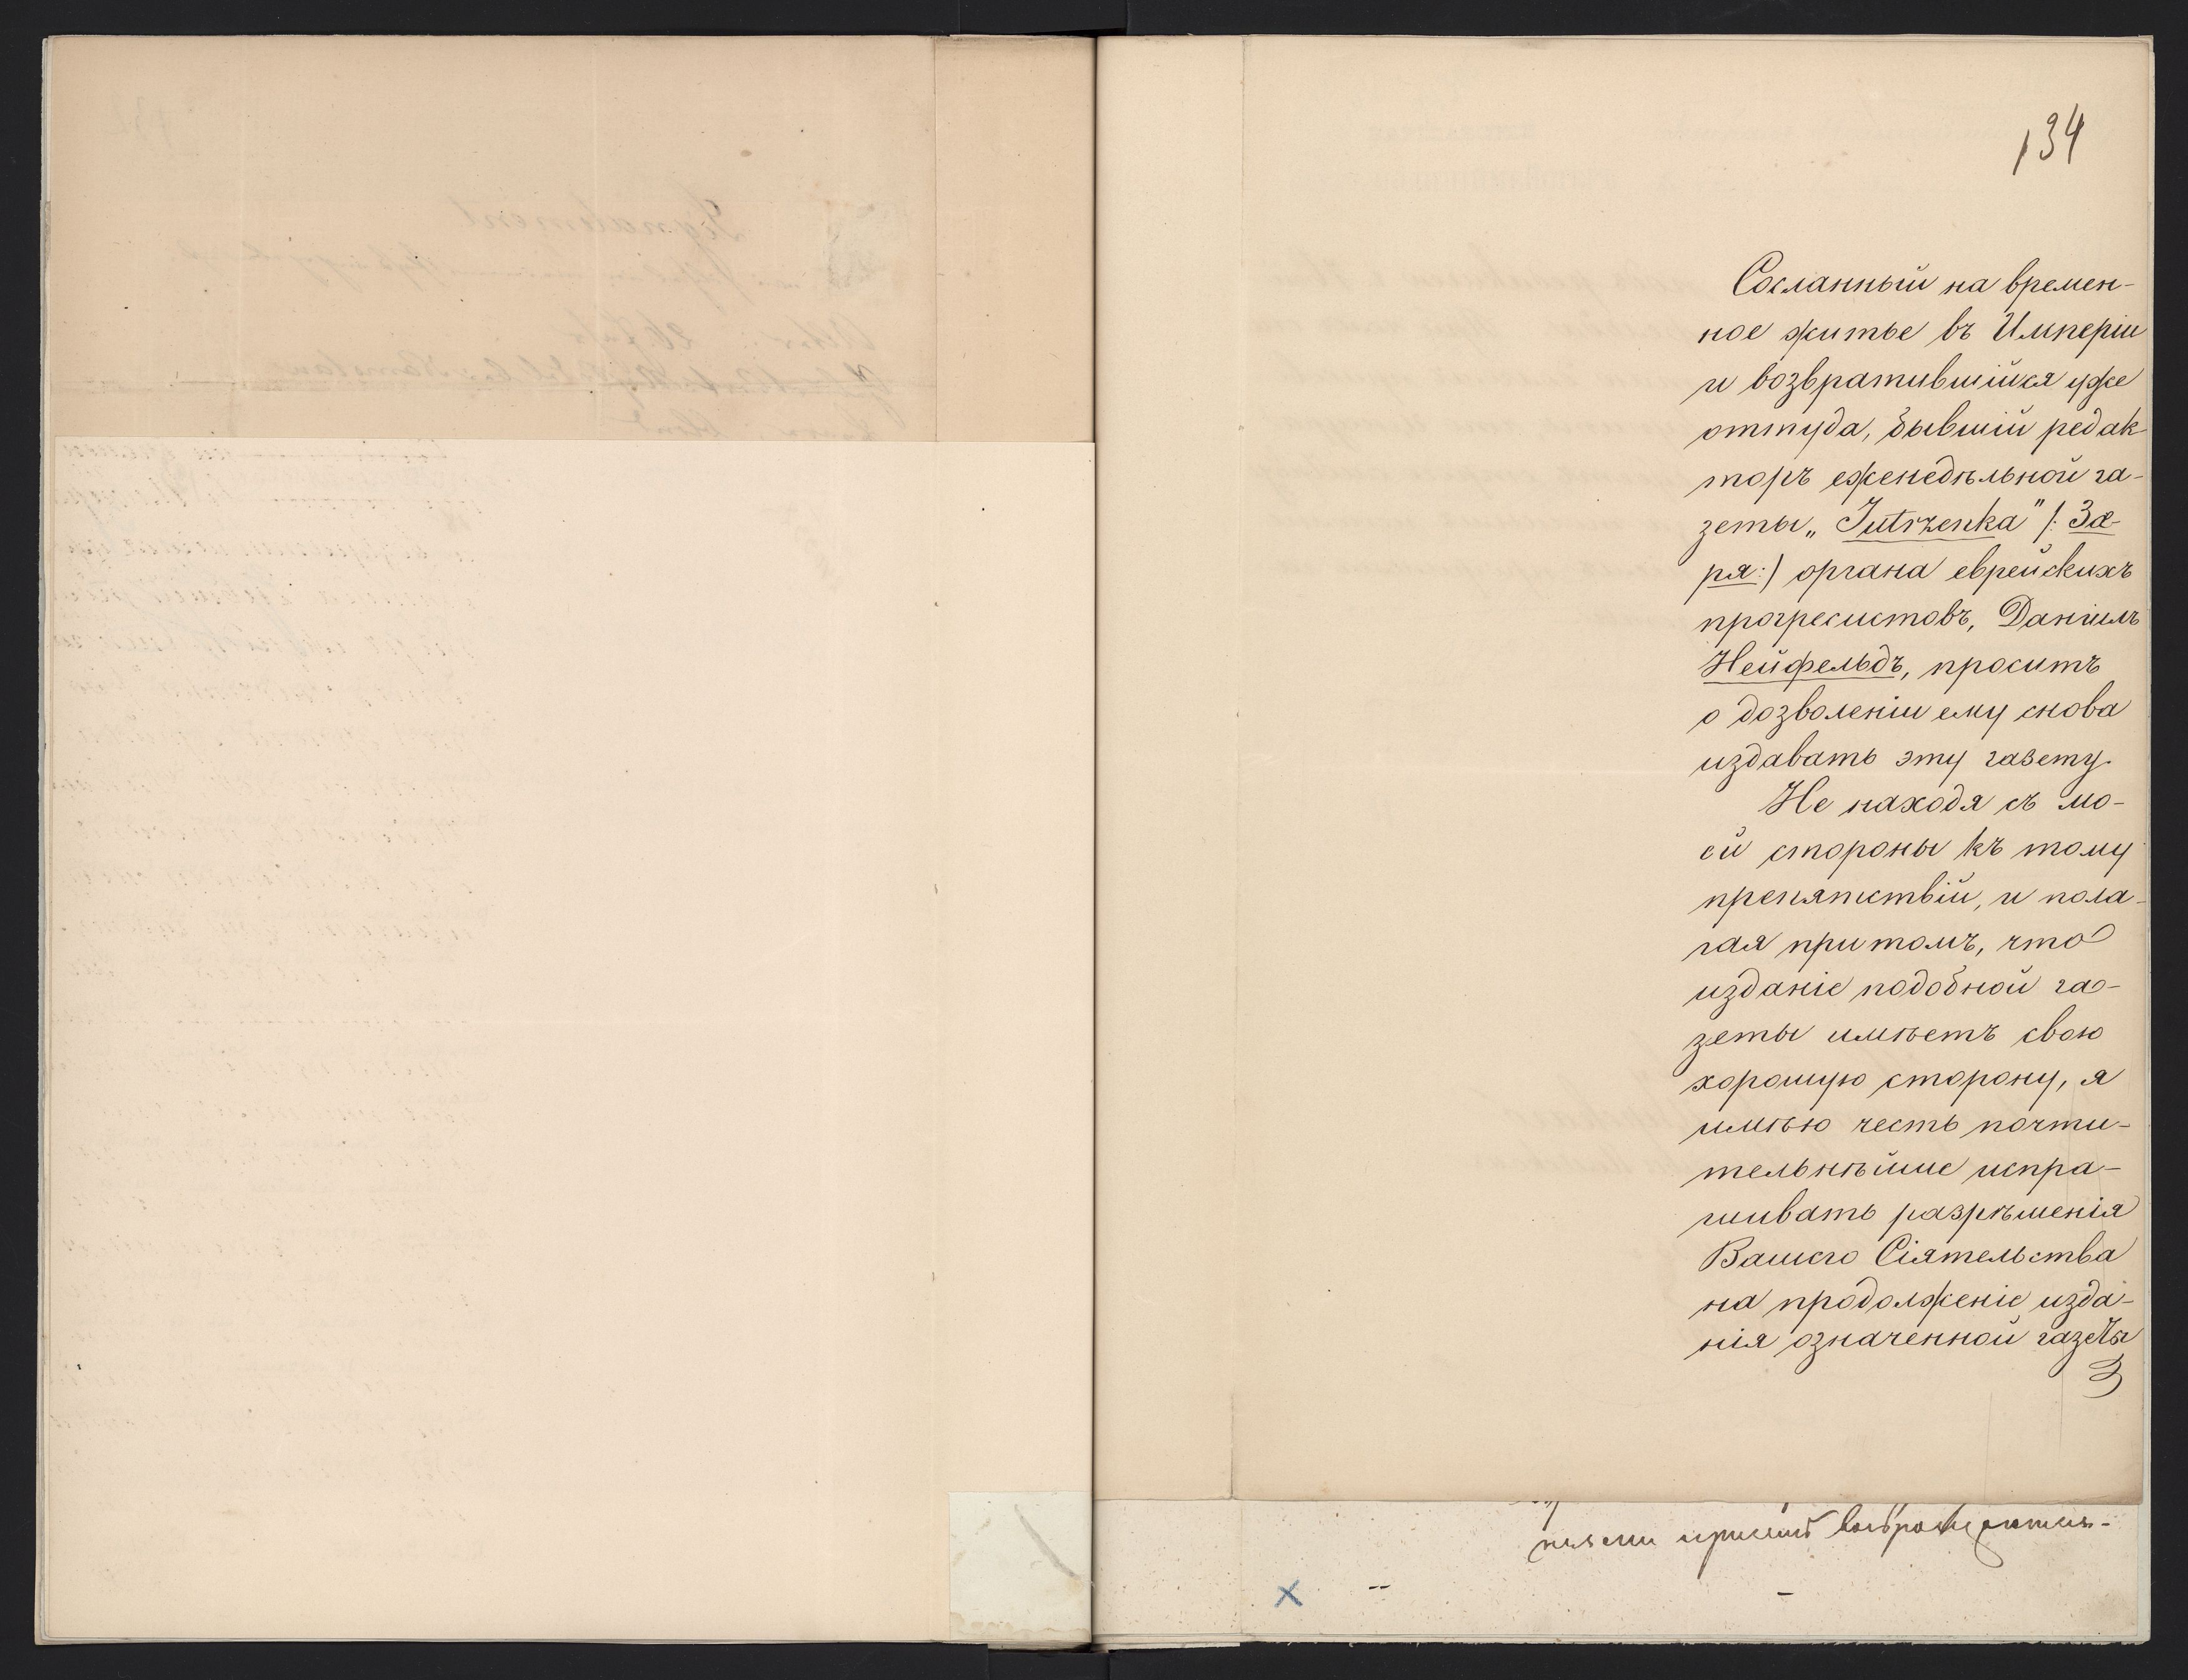 134
Сосланный на времен-
ное житье въ Имперіи
и возвратившійся уже
оттуда, бывшій редак-
торъ еженедѣльной га-
зеты „Jutrzenka" /: За-
ря:/ органа еврейскихъ
прогресистовъ, Даніилъ
Нейфельдъ, проситъ
о дозволеніи ему снова
издавать эту газету.
Не находя съ мо-
ей стороны къ тому
препятствій, и пола-
гая притомъ, что
изданіе подобной га-
зеты имѣетъ свою
хорошую сторону, я
имѣю честь почти-
тельнѣйше испра-
шивать разрѣшенія
Вашего Сіятельства
на продолженіе изда-
нія означенной газеты